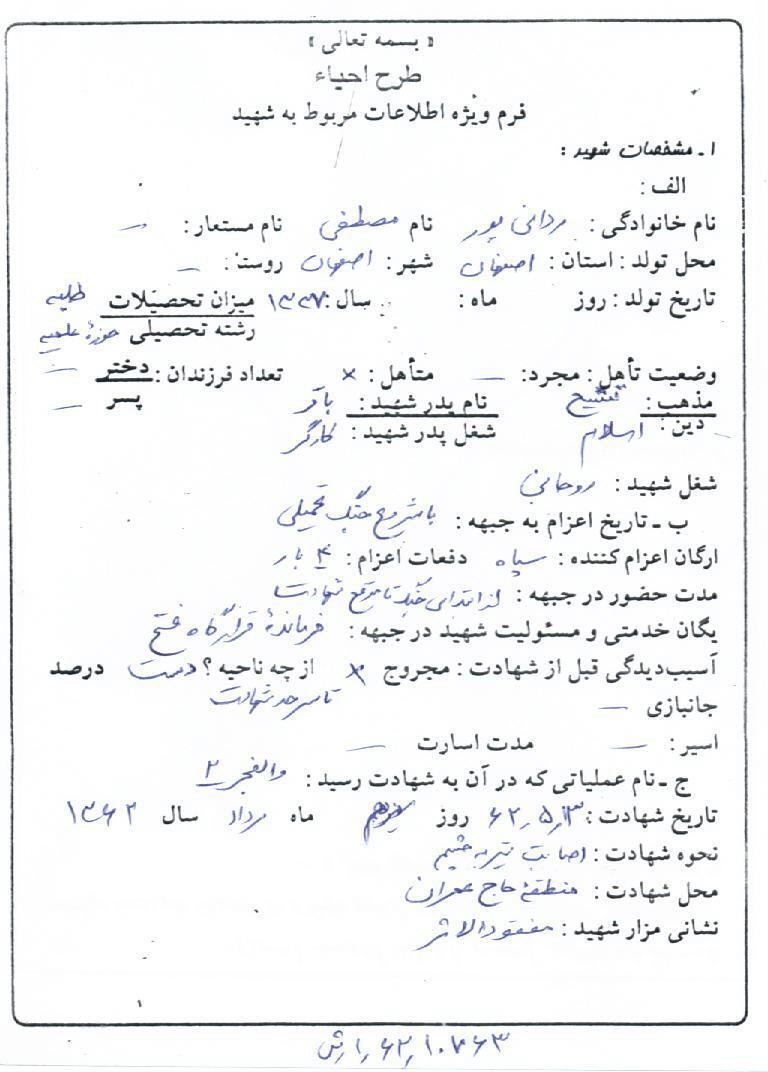 « بسمه تعالی »
طرح احیاء
فرم ویژه اطلاعات مربوط به شهید
۱ ـ مشخصات شهید :
الف :
نام خانوادگی : مردانی پور نام مصطفی نام مستعار : —
محل تولد : استان : اصفهان شهر : اصفهان روستا : —
تاریخ تولد : روز ماه : سال : ۱۳۳۷ میزان تحصیلات طلبه
رشته تحصیلی حوزهٔ علمیه
وضعیت تأهل : مجرد : — متأهل : × تعداد فرزندان : دختر —
مذهب : تشیع نام پدر شهید : باقر پسر —
دین : اسلام شغل پدر شهید : کارگر
شغل شهید : روحانی
ب ـ تاریخ اعزام به جبهه : با شروع جنگ تحمیلی
ارگان اعزام کننده : سپاه دفعات اعزام : ۴ بار
مدت حضور در جبهه : از ابتدای جنگ تا موقع شهادت
یگان خدمتی و مسئولیت شهید در جبهه : فرماندهٔ قرارگاه فتح
آسیب‌دیدگی قبل از شهادت : مجروح × از چه ناحیه ؟ دست درصد
جانبازی — تا سرحد شهادت
اسیر : — مدت اسارت —
ج ـ نام عملیاتی که در آن به شهادت رسید : والفجر ۲
تاریخ شهادت : ۶۲٫۵٫۱۳ روز ماه مرداد سال ۱۳۶۲
نحوه شهادت : اصابت تیر به چشم
محل شهادت : منطقهٔ حاج عمران
نشانی مزار شهید : مفقودالاثر
۱